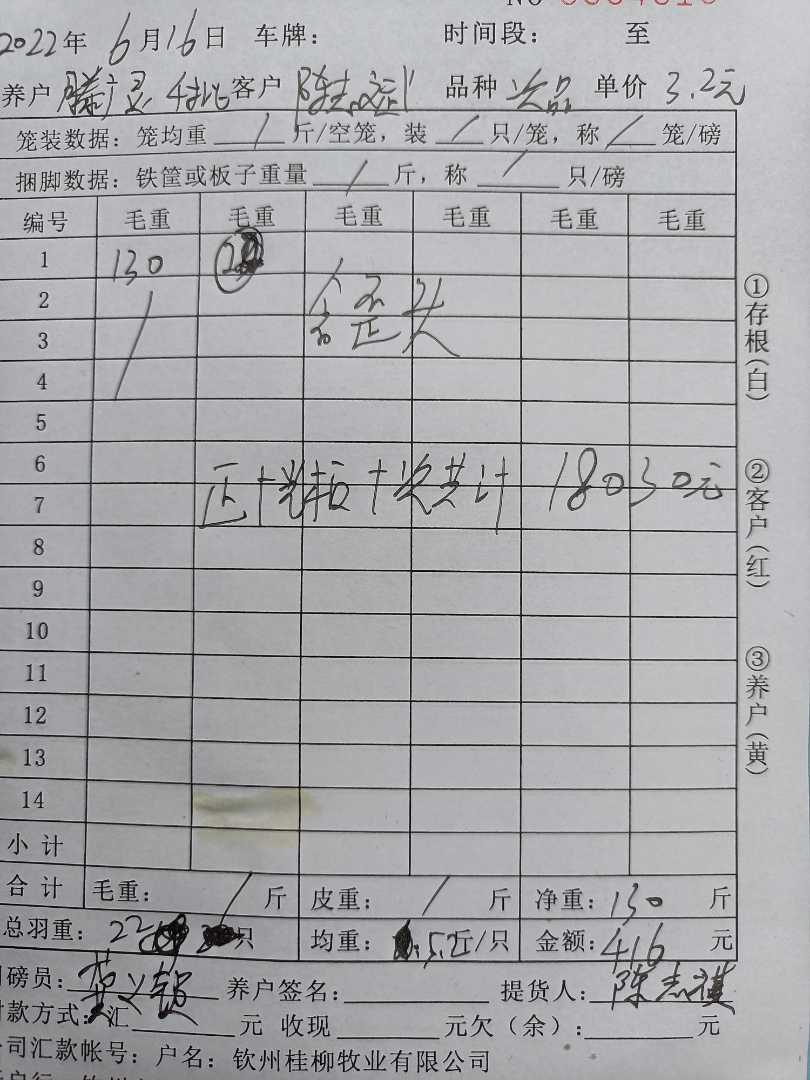 2022年 6月16日 车牌： 时间段： 至
养户 客户 陈志 品种 次品 单价 3.2元
笼装数据：笼均重 / 斤/空笼，装 / 只/笼，称 / 笼/磅
捆脚数据：铁筐或板子重量 / 斤，称 / 只/磅
编号 毛重 毛重 毛重 毛重 毛重 毛重
1 130
2
3
4
5
6
正十 十次共计 18030元
7
8
9
10
11
12
13
14
小计
合计 毛重： / 斤 皮重： / 斤 净重：130 斤
总羽重：22 只 均重： 5.2斤/只 金额：416 元
磅员： 养户签名： 提货人：陈志
款方式：汇 元 收现 元欠（余）： 元
司汇款帐号：户名：钦州桂柳牧业有限公司
①存根（白）
②客户（红）
③养户（黄）